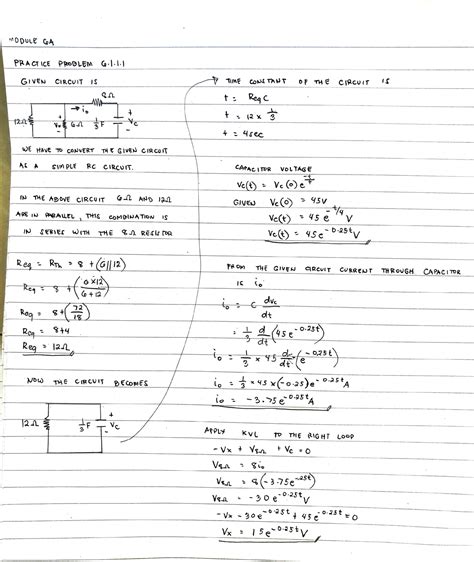 MODULE 6A
PRACTICE PROBLEM 6.1.1.1
GIVEN CIRCUIT IS
8Ω
i₀
12Ω
Vx
6Ω
1/3 F
+
Vc
-
WE HAVE TO CONVERT THE GIVEN CIRCUIT
AS A SIMPLE RC CIRCUIT.
IN THE ABOVE CIRCUIT 6Ω AND 12Ω
ARE IN PARALLEL, THIS COMBINATION IS
IN SERIES WITH THE 8Ω RESISTOR
Req = RTh = 8 + (6||12)
Req = 8 + (6×12/6+12)
Req = 8+(72/18)
Req = 8+4
Req = 12Ω
NOW THE CIRCUIT BECOMES
12Ω
1/3 F
+
Vc
-
TIME CONSTANT OF THE CIRCUIT IS
t = Req C
t = 12 × 1/3
t = 4sec
CAPACITOR VOLTAGE
Vc(t) = Vc(0) e^-t/τ
GIVEN Vc(0) = 45V
Vc(t) = 45 e^-t/4 V
Vc(t) = 45 e^-0.25t V
FROM THE GIVEN CIRCUIT CURRENT THROUGH CAPACITOR
IS i₀
i₀ = C dvc/dt
= 1/3 d/dt (45e^-0.25t)
i₀ = 1/3 × 45 d/dt (e^-0.25t)
i₀ = 1/3 × 45 × (-0.25) e^-0.25t A
i₀ = -3.75e^-0.25t A
APPLY KVL TO THE RIGHT LOOP
-Vx + V8Ω + Vc = 0
V8Ω = 8i₀
V8Ω = 8(-3.75e^-25t)
V8Ω = -30e^-0.25t V
-Vx -30e^-0.25t + 45e^-0.25t = 0
Vx = 15e^-0.25t V